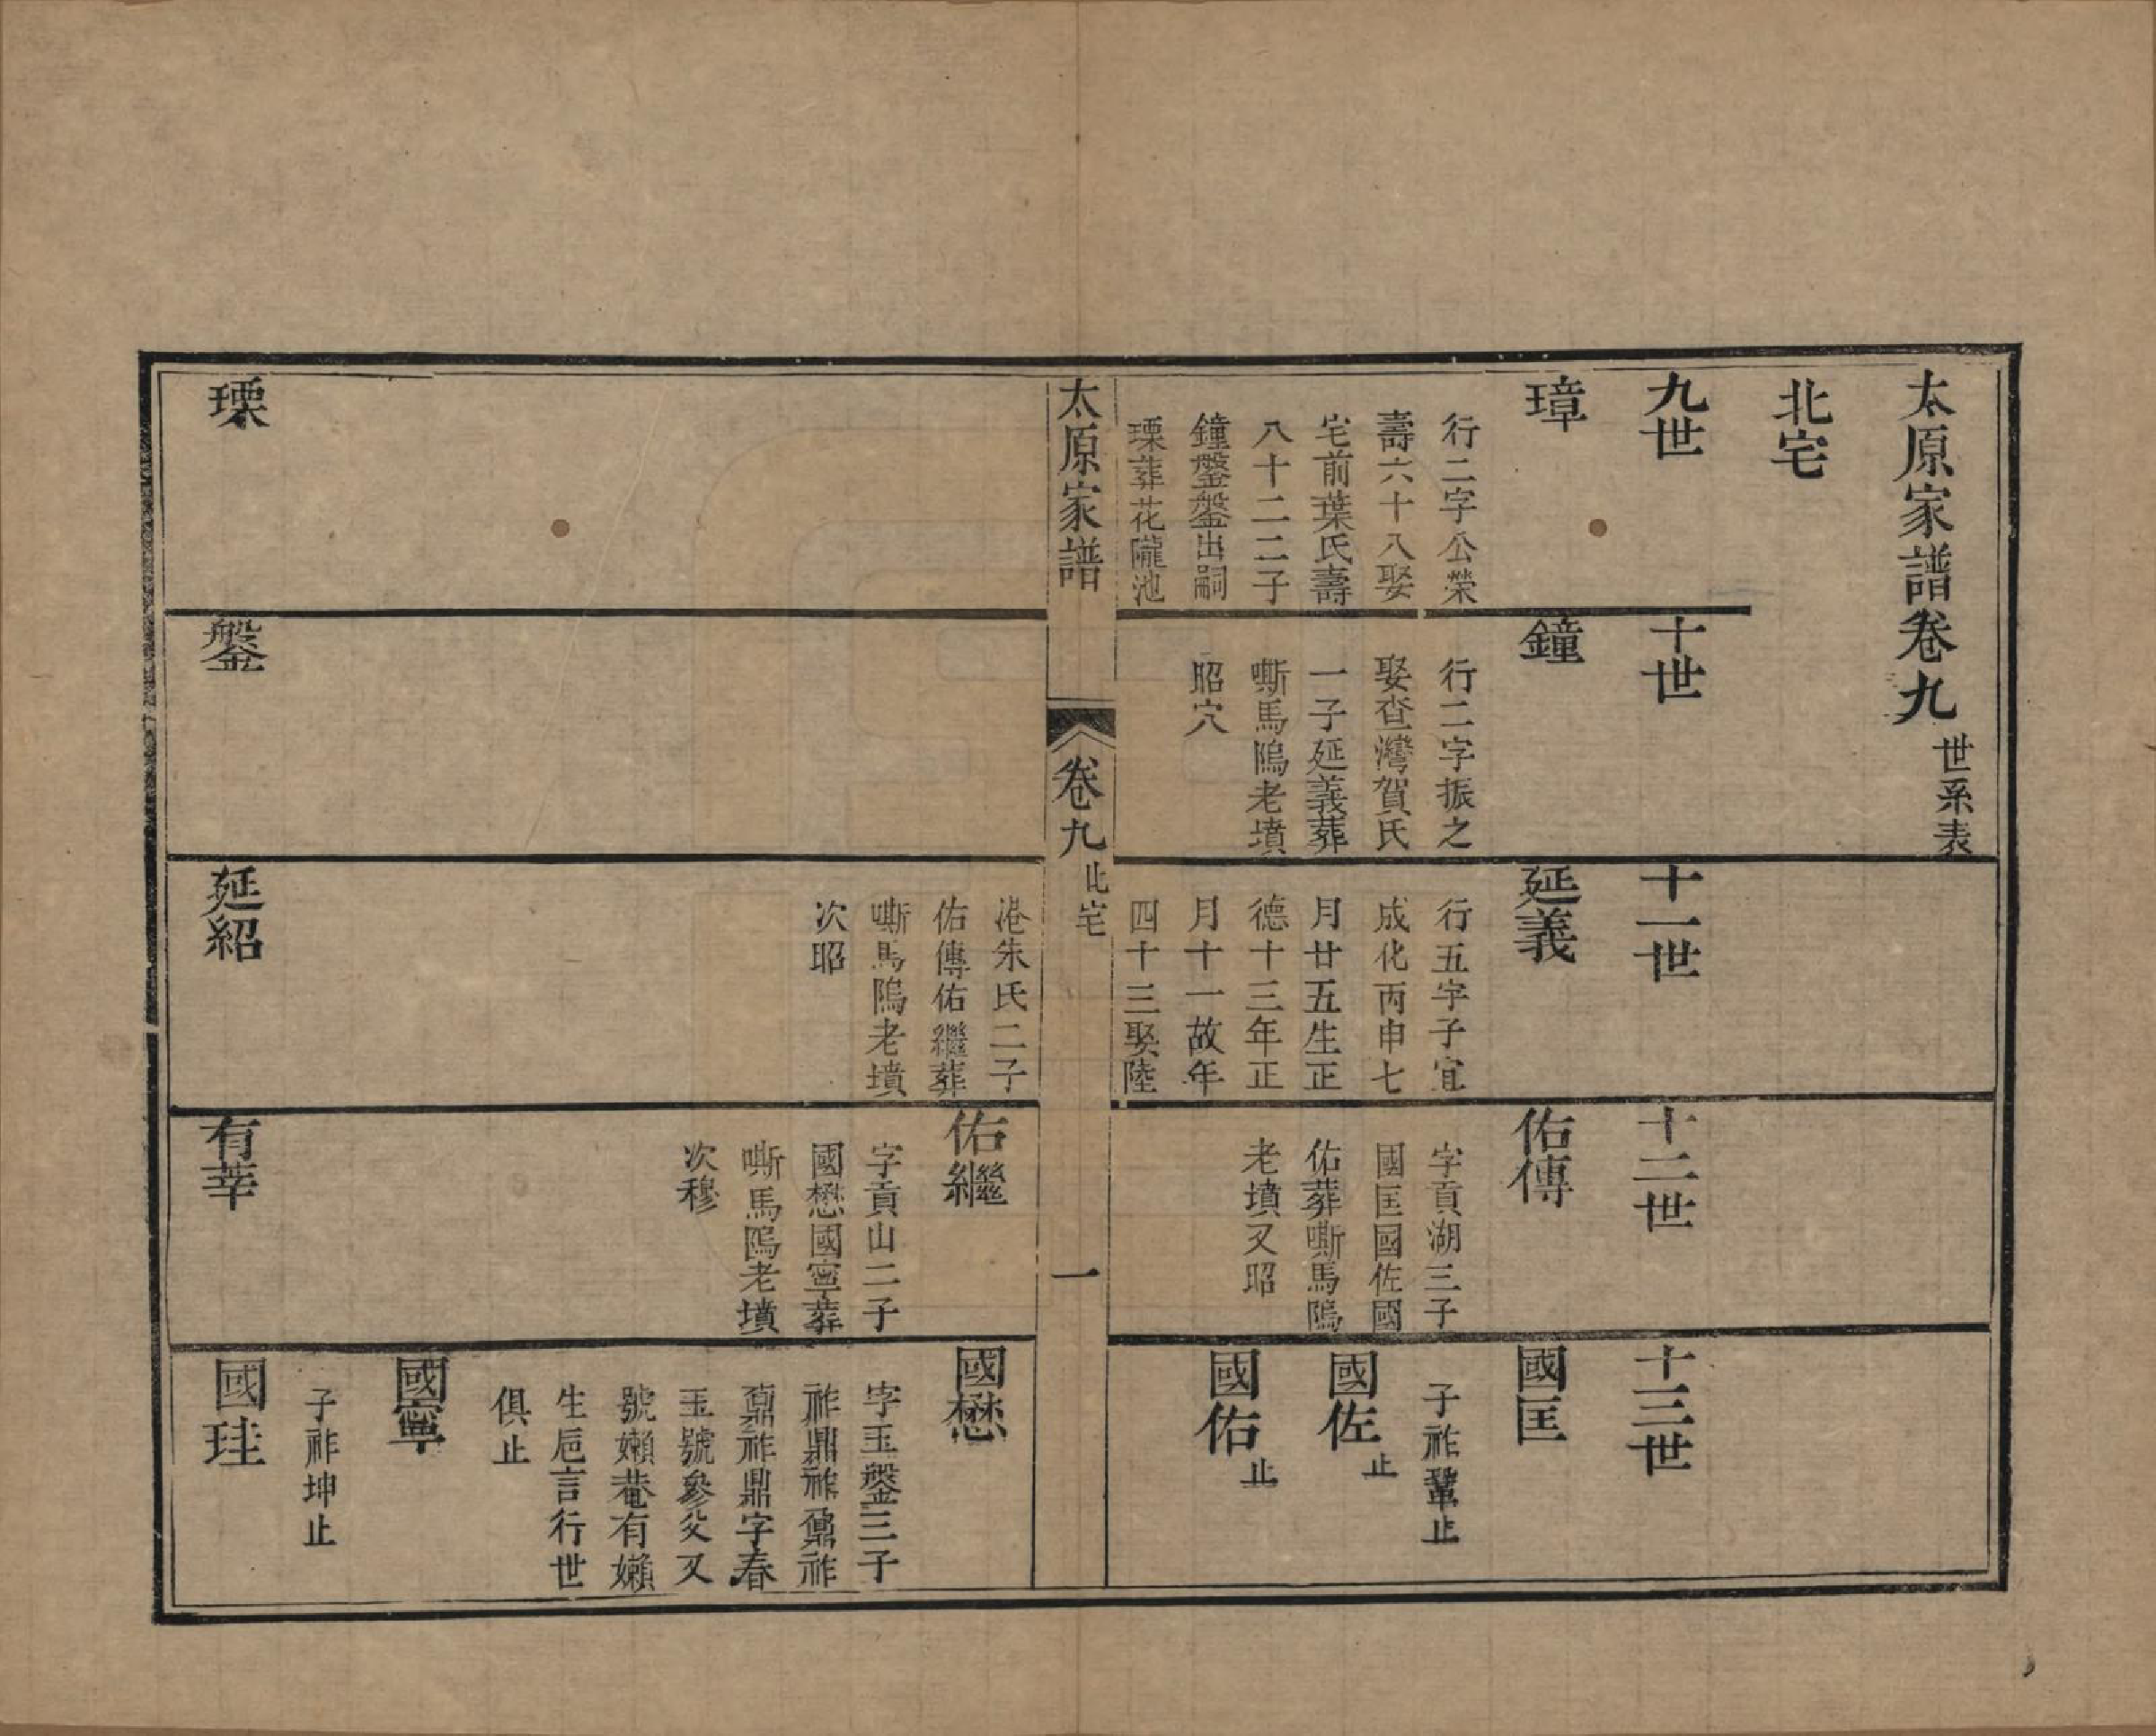 太原家譜卷九世系表
北宅
九世
璋
行二字公榮
壽六十八娶
宅前葉氏壽
八十二二子
鐘鎜鎜出嗣
瑮葬花隴池
十世
鐘
行二字振之
娶查灣賀氏
一子延義葬
嘶馬隖老墳
昭穴
十一世
延義
行五字子宜
成化丙申七
月廿五生正
德十三年正
月十一故年
四十三娶陸
十二世
佑傳
字貢湖三子
國匡國佐國
佑葬嘶馬隖
老墳又昭
十三世
國匡
子祚鞏止
國佐止
國佑止
太原家譜
卷九北宅
一
港朱氏二子
佑傳佑繼葬
嘶馬隖老墳
次昭
佑繼
字貢山二子
國懋國寧葬
嘶馬隖老墳
次穆
國懋
字玉鎜三子
祚鼎祚鼐祚
鼒祚鼎字春
玉號參父又
號嬾菴有嬾
生巵言行世
俱止
國寧
子祚坤止
瑮
鎜
延紹
有莘
國珪